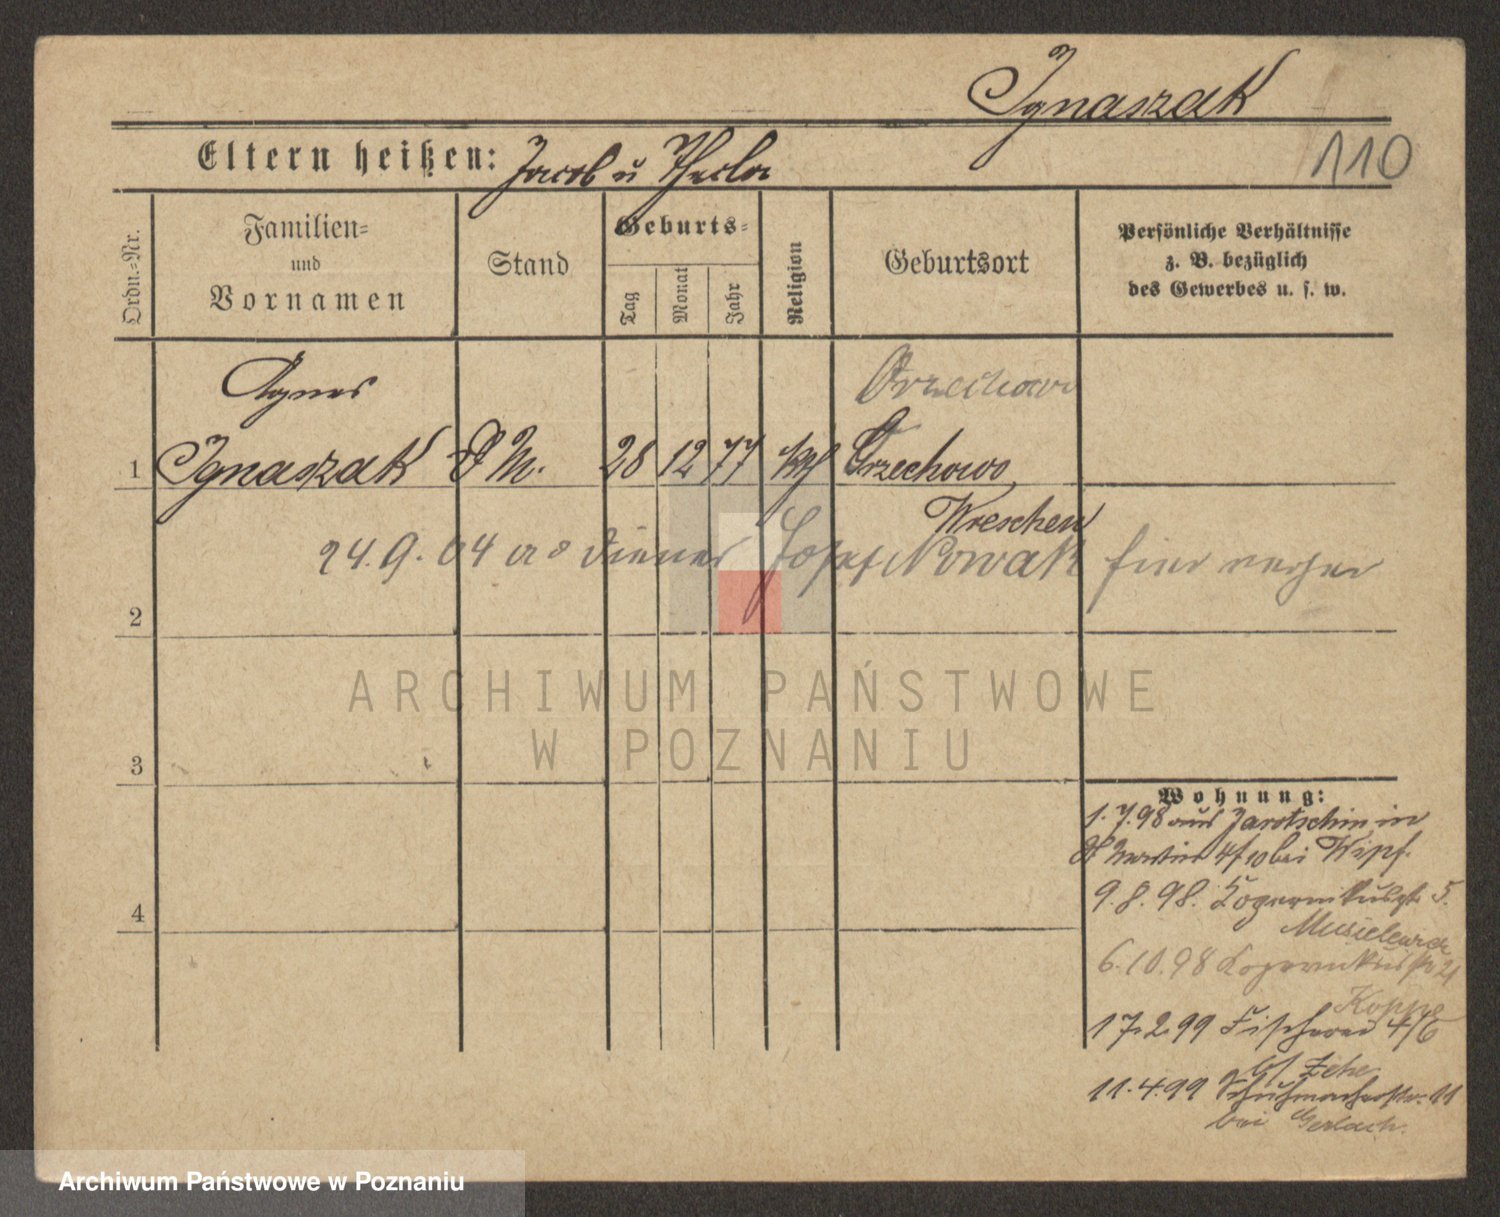 Ignaszak
110
Eltern heißen: Jacob u Thecla
Ordn.=Nr.
Familien=
und
Vornamen
Stand
Geburts=
Tag
Monat
Jahr
Religion
Geburtsort
Persönliche Verhältnisse
z. B. bezüglich
des Gewerbes u. s. w.
Agnes
Orzechowo
1 Ignaszak D M. 28 12 77 kth Orzechowo
Wreschen
24.9.04 Diener Josef Nowak hier
2
ARCHIWUM PAŃSTWOWE
W POZNANIU
3
Wohnung:
1.7.98 aus Jarotschin in
St Martin 4/10 bei
4
9.8.98. Kopernikusstr 5.
6.10.98 Kopernikusstr 21
Koppe
17.2.99 Fischerei 4/6
bei Zehe
11.4.99 Schuhmacherstr. 11
bei Gerlach.
Archiwum Państwowe w Poznaniu